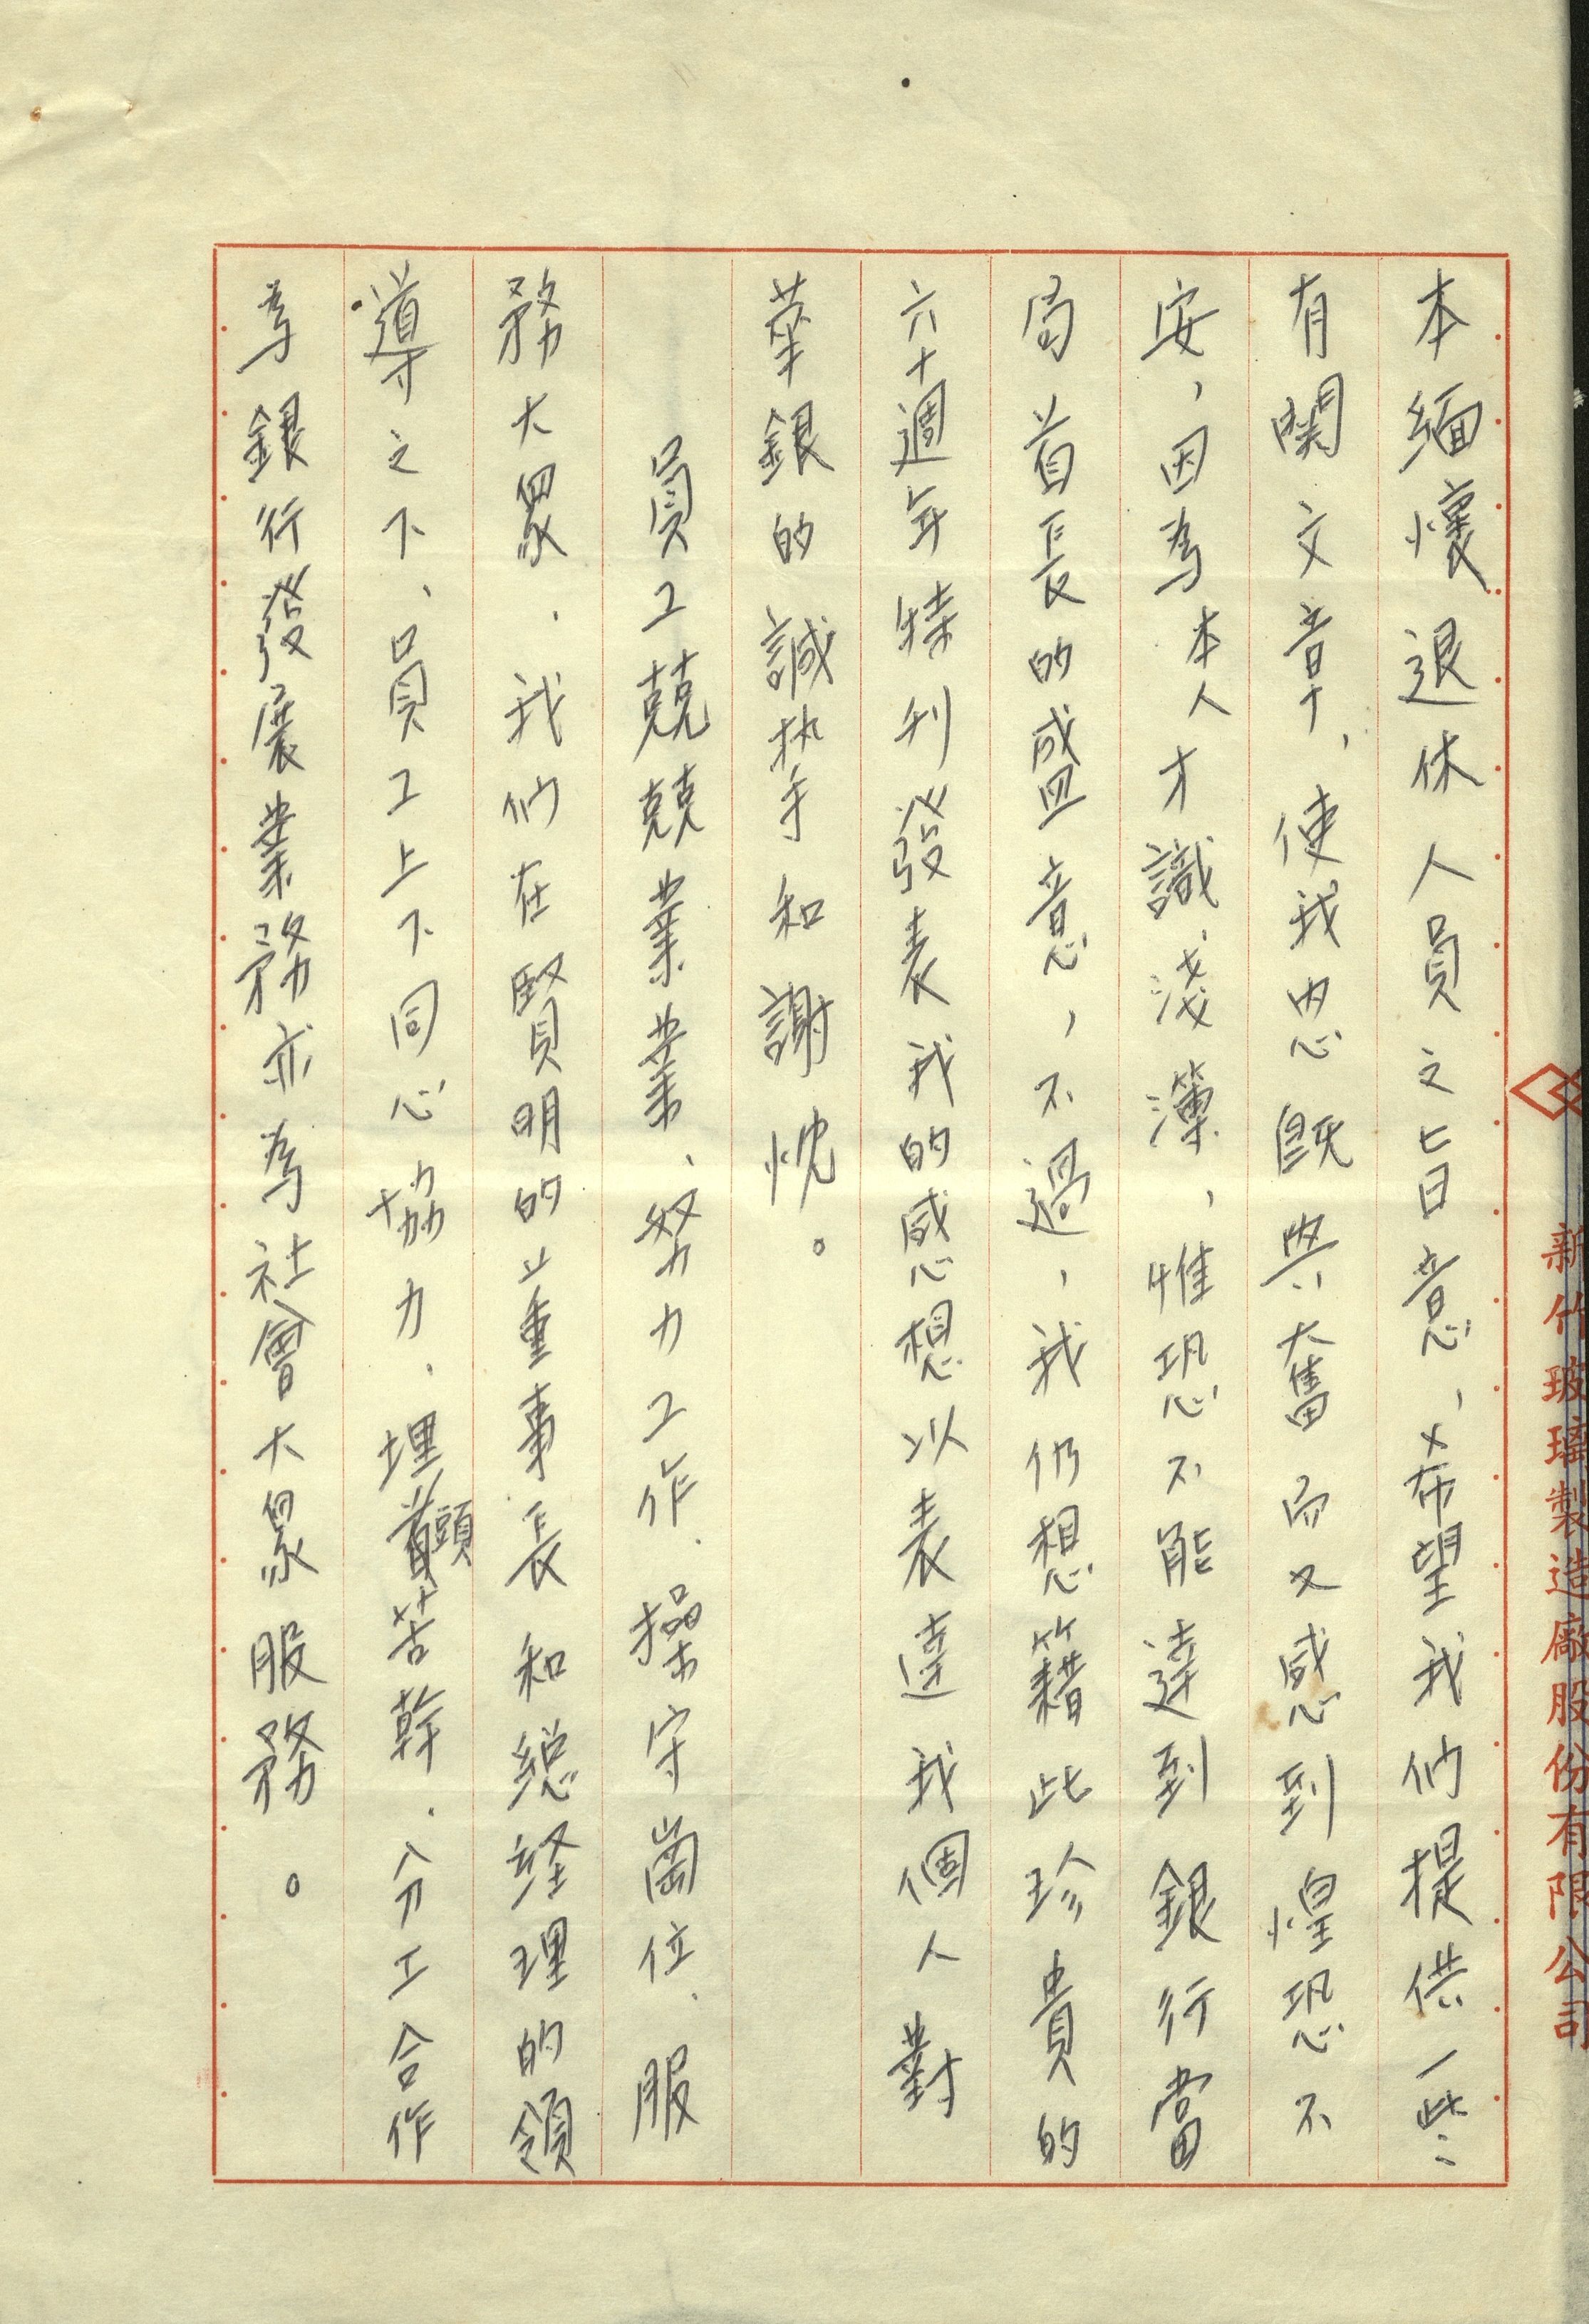 本緬懷退休人員之旨意，希望我們提供一些
有関文章，使我内思既興奮而又感到惶恐不
安，因為本人才識淺簿，惟恐不能達到銀行當
局首長的盛意，不過，我仍想籍此珍貴的
六十週年特刊發表我的感想以表達我個人對
華銀的誠執手和謝忱。
員工兢兢業業、努力工作、操守崗位、服
務大眾．我們在賢明的董事長和總經理的領
導之下、員工上下同心協力．埋頭苦幹．分工合作
為銀行發展業務亦為社會大眾服務。
新竹玻璃製造廠股份有限公司